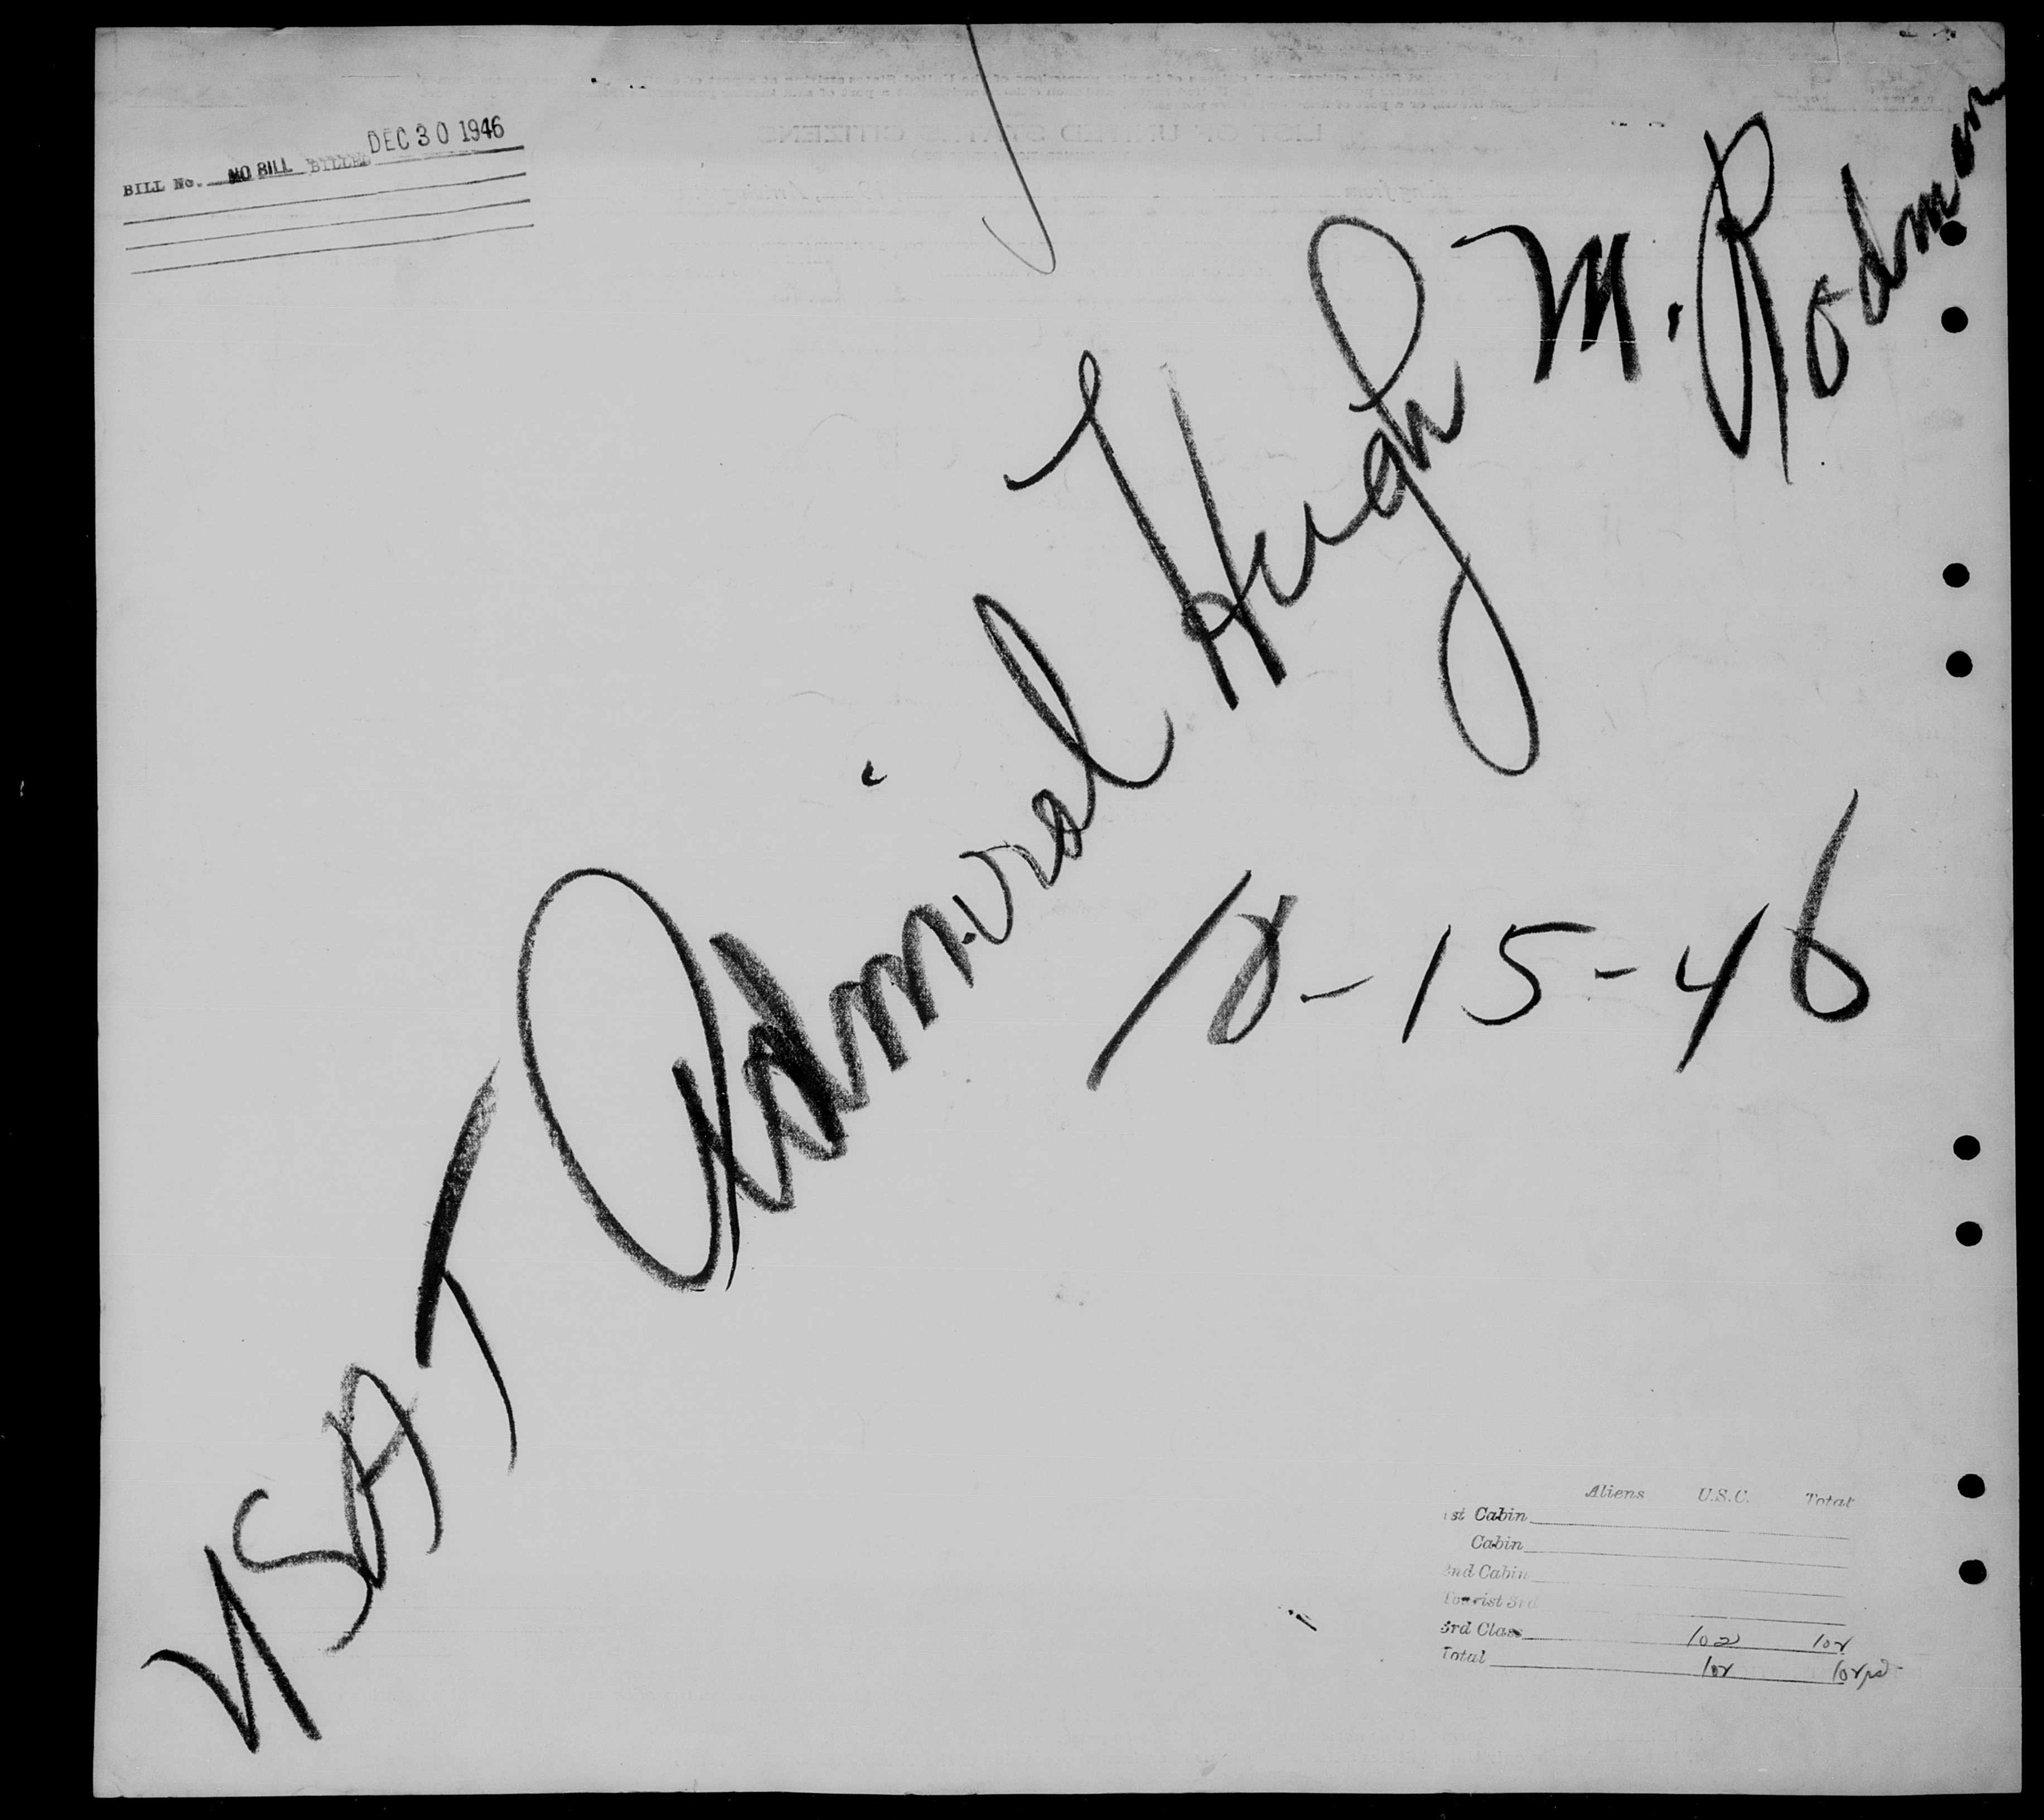 DEC 30 1946
BILL No. NO BILL BILLED
USAT Admiral Hugh M. Rodman
12-15-46
LIST OF UNITED STATES CITIZENS
Aliens U.S.C. Total
1st Cabin
Cabin
2nd Cabin
Tourist 3rd
3rd Class 102 102
Total 102 102